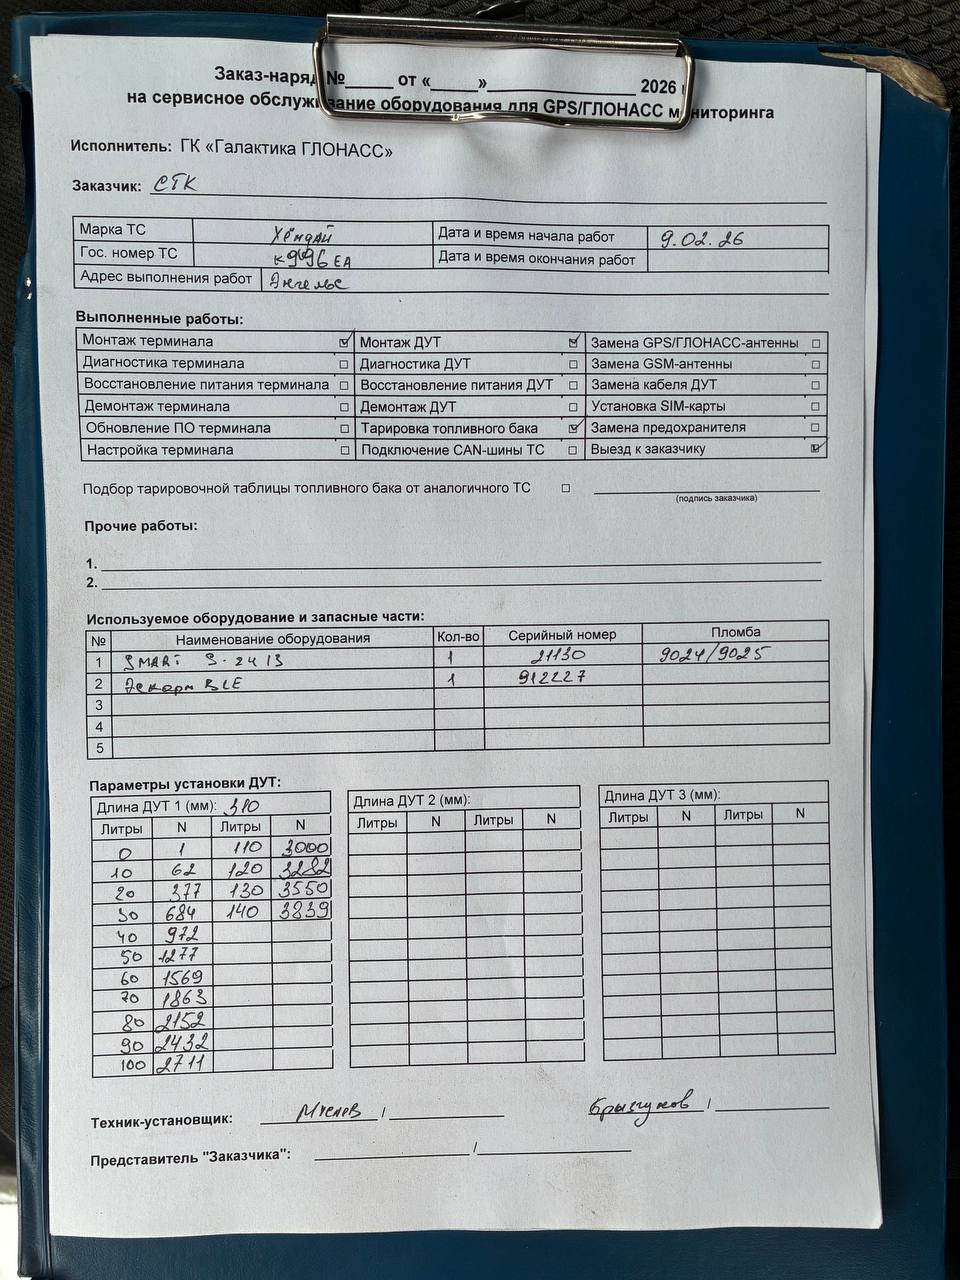 Заказ-наряд №_____ от «_____»_______________ 2026
на сервисное обслуживание оборудования для GPS/ГЛОНАСС мониторинга
Исполнитель: ГК «Галактика ГЛОНАСС»
Заказчик: СТК
Марка ТС Хёндай Дата и время начала работ 9.02.26
Гос. номер ТС ЕА Дата и время окончания работ
Адрес выполнения работ Энгельс
Выполненные работы:
Монтаж терминала ☑ Монтаж ДУТ ☑ Замена GPS/ГЛОНАСС-антенны ☐
Диагностика терминала ☐ Диагностика ДУТ ☐ Замена GSM-антенны ☐
Восстановление питания терминала ☐ Восстановление питания ДУТ ☐ Замена кабеля ДУТ ☐
Демонтаж терминала ☐ Демонтаж ДУТ ☐ Установка SIM-карты ☐
Обновление ПО терминала ☐ Тарировка топливного бака ☑ Замена предохранителя ☐
Настройка терминала ☐ Подключение CAN-шины ТС ☐ Выезд к заказчику ☑
Подбор тарировочной таблицы топливного бака от аналогичного ТС ☐
(подпись заказчика)
Прочие работы:
1.
2.
Используемое оборудование и запасные части:
№ Наименование оборудования Кол-во Серийный номер Пломба
1 SMART S-2413 1 21130 9024/9025
2 Эскорт BLE 1 912227
3
4
5
Параметры установки ДУТ:
Длина ДУТ 1 (мм): 310 Длина ДУТ 2 (мм): Длина ДУТ 3 (мм):
Литры N Литры N Литры N Литры N Литры N Литры N
0 1 110 3000
10 62 120 3282
20 377 130 3550
30 684 140 3839
40 972
50 1277
60 1569
70 1863
80 2152
90 2432
100 2711
Техник-установщик: / Брызгунов /
Представитель "Заказчика": /